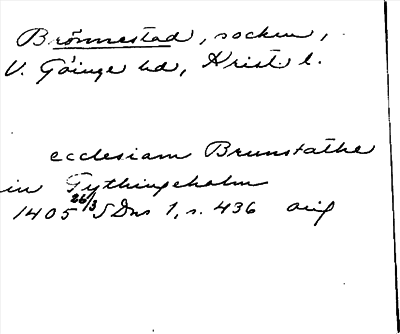 Brönnestad, socken,
V. Göinge hd, Krist. l.
ecclesiam Brunstathe
in Gythingeholm
1405 26/3 SDns 1, s. 436 orig